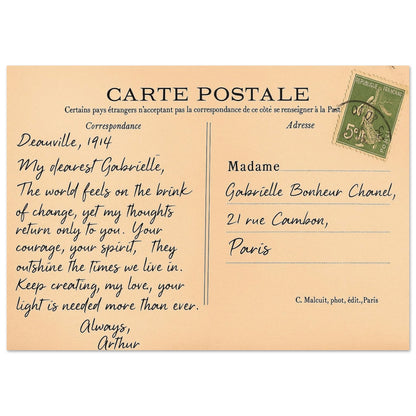 CARTE POSTALE
Certains pays étrangers n'acceptant pas la correspondance de ce côté se renseigner à la Post
Correspondance
Adresse
REPUBLIQUE FRANCAISE
5c
Deauville, 1914
My dearest Gabrielle,
The world feels on the brink
of change, yet my thoughts
return only to you. Your
courage, your spirit, They
outshine the times we live in.
Keep creating, my love, your
light is needed more than ever.
Always,
Arthur
Madame
Gabrielle Bonheur Chanel,
21 rue Cambon,
Paris
C. Malcuit, phot, édit., Paris